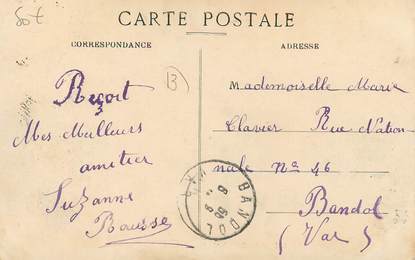 50€
CARTE POSTALE
CORRESPONDANCE
ADRESSE
13
Reçoit
Mes Meilleurs
amitier
Suzanne
Rousse
Mademoiselle Marie
Clavier Rue Nation
nale Nº 46
Bandol
(Var)
BANDOL
VAR